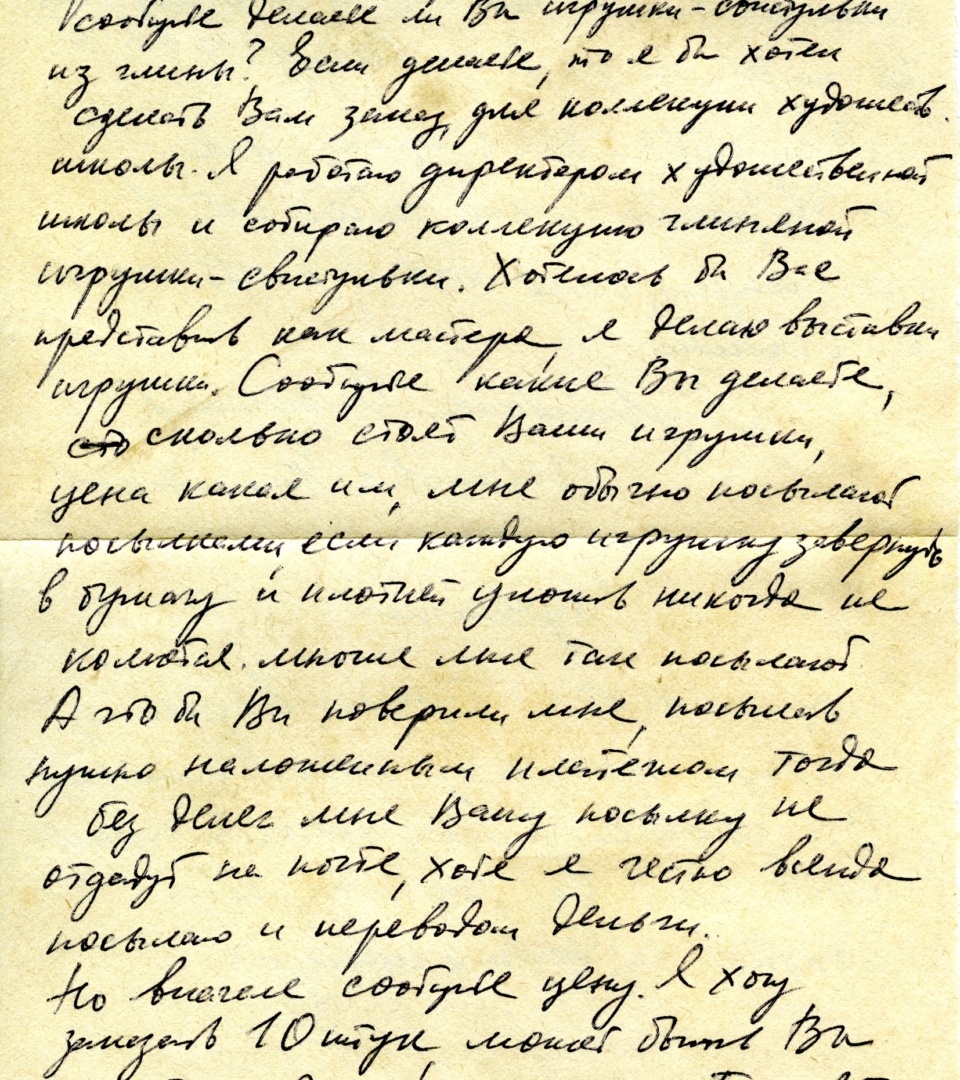 сообщите делаете ли Вы игрушки-свистульки
из глины? Если делаете, то я бы хотел
сделать Вам заказ, для коллекции художеств.
школы. Я работаю директором художественной
школы и собираю коллекцию глиняной
игрушки-свистульки. Хотелось бы Вас
представить как мастера, я делаю выставки
игрушки. Сообщите какие Вы делаете,
сколько стоят Ваши игрушки,
цена какая им, мне обычно посылают
посылками, если каждую игрушку завернуть
в бумагу и плотней уложить никогда не
колются. многие мне так посылают
А что бы Вы поверили мне, посылать
нужно наложенным платежом тогда
без денег мне Вашу посылку не
отдадут на почте, хотя я честно всегда
посылаю и переводом деньги.
Но вначале сообщите цену. Я хочу
заказать 10 штук, может быть Вы